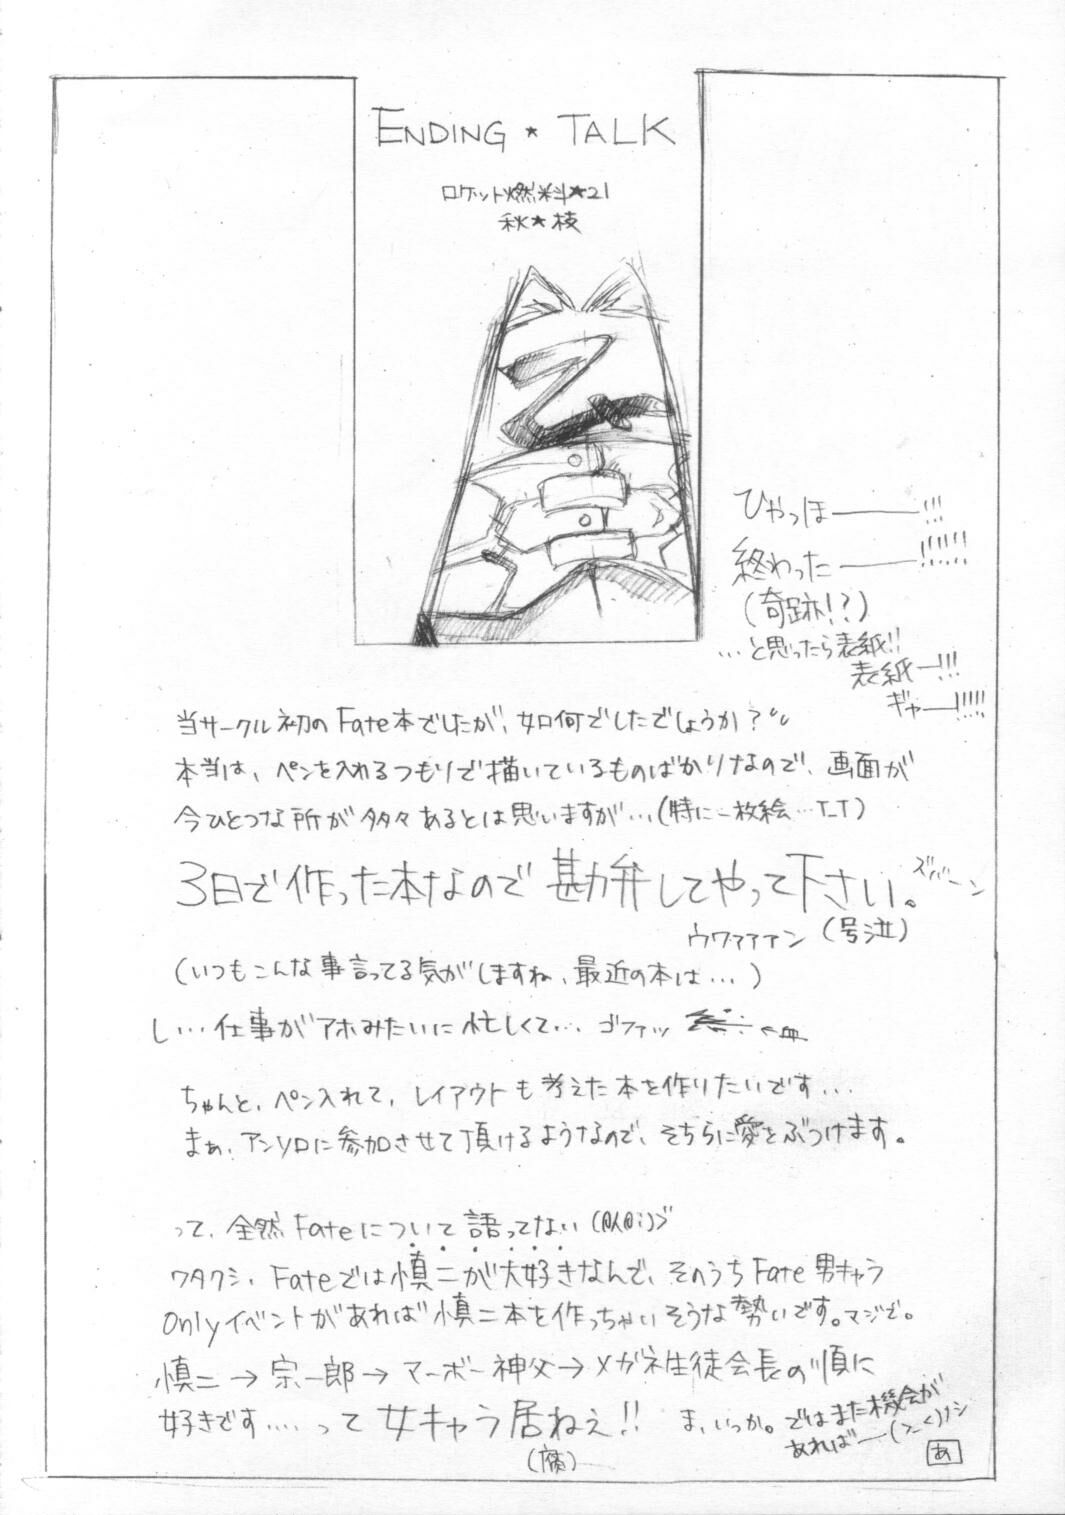 ENDING ★ TALK
ロケット燃料★21
秋★枝
ひやっほ———!!!
終わった———!!!!!!
(奇跡!?)
…と思ったら表紙!!
表紙—!!!
ギャ—!!!!!
当サークル初のFate本でしたが、如何でしたでしょうか?
本当は、ペンを入れるつもりで描いているものばかりなので、画面が
今ひとつな所が多々あるとは思いますが…(特に一枚絵…T_T)
3日で作った本なので勘弁してやって下さい。ズバーン
ウワァァァン (号泣)
(いつもこんな事言ってる気がしますね、最近の本は…)
し…仕事がアホみたいに忙しくて… ゴファッ ←血
ちゃんと、ペン入れて、レイアウトも考えた本を作りたいです…
まぁ、アンソロに参加させて頂けるようなので、そちらに愛をぶつけます。
って、全然Fateについて語ってない
ワタクシ、Fateでは慎二が大好きなんで、そのうちFate男キャラ
Onlyイベントがあれば慎二本を作っちゃいそうな勢いです。マジで。
慎二→宗一郎→マーボー神父→メガネ生徒会長の順に
好きです…. って女キャラ居ねぇ!!
(腐)
ま、いっか。ではまた機会が
あれば—(>_<)ノシ
あ